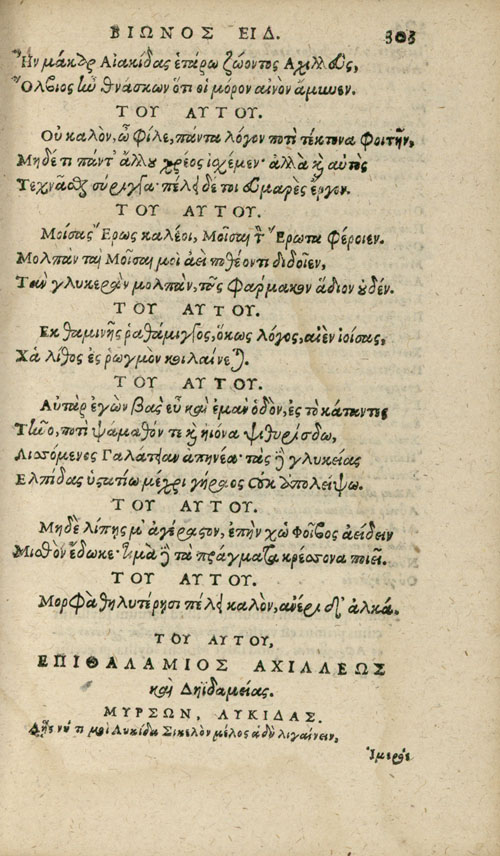 ΒΙΩΝΟΣ ΕΙΔ. 303
Ἦν μάκαρ Αἰακίδας ἑτάρω ζώοντος Ἀχιλλεὺς,
Ὄλβιος ἦν θνάσκων ὅτι οἱ μόρον αἰνὸν ἄμυνεν.
ΤΟΥ ΑΥΤΟΥ.
Οὐ καλὸν, ὦ φίλε, πάντα λόγον ποτὶ τέκτονα φοιτῆν,
Μηδέ τι πάντ' ἄλλου χρέος ἰσχέμεν· ἀλλὰ καὶ αὐτὸς
Τεχνᾶσθαι σύριγγα· πέλει δέ τοι εὐμαρὲς ἔργον.
ΤΟΥ ΑΥΤΟΥ.
Μοίσας Ἔρως καλέοι, Μοῖσαι τὸν Ἔρωτα φέροιεν.
Μολπὰν ταὶ Μοῖσαι μοὶ ἀεὶ ποθέοντι διδοῖεν,
Τὰν γλυκερὰν μολπὰν, τᾶς φάρμακον ἅδιον οὐδέν.
ΤΟΥ ΑΥΤΟΥ.
Ἐκ θαμινῆς ῥαθάμιγγος, ὅκως λόγος, αἰὲν ἰοίσας,
Χἁ λίθος ἐς ῥωγμὸν κοιλαίνεται.
ΤΟΥ ΑΥΤΟΥ.
Αὐτὰρ ἐγὼν βασεῦμαι ἐμὰν ὁδὸν, ἐς τὸ κάταντες
Τῆνο, ποτὶ ψάμαθόν τε καὶ ἠιόνα ψιθυρίσδω,
Λισσόμενος Γαλάτειαν ἀπηνέα· τὰς δὲ γλυκείας
Ἐλπίδας ὑστατίω μέχρι γήραος οὐκ ἀπολείψω.
ΤΟΥ ΑΥΤΟΥ.
Μηδὲ λίπης μ' ἀγέραστον, ἐπὴν χὠ Φοῖβος ἀείδειν
Μισθὸν ἔδωκε· τιμὰ δὲ τὰ πράγματα κρέσσονα ποιεῖ.
ΤΟΥ ΑΥΤΟΥ.
Μορφὰ θηλυτέρῃσι πέλει καλὸν, ἀνέρι δ' ἀλκά.
ΤΟΥ ΑΥΤΟΥ,
ΕΠΙΘΑΛΑΜΙΟΣ ΑΧΙΛΛΕΩΣ
καὶ Δηϊδαμείας.
ΜΥΡΣΩΝ, ΛΥΚΙΔΑΣ.
Λῇς νύ τι μοὶ Λυκίδα Σικελὸν μέλος ἁδὺ λιγαίνειν,
Ἱμερόε